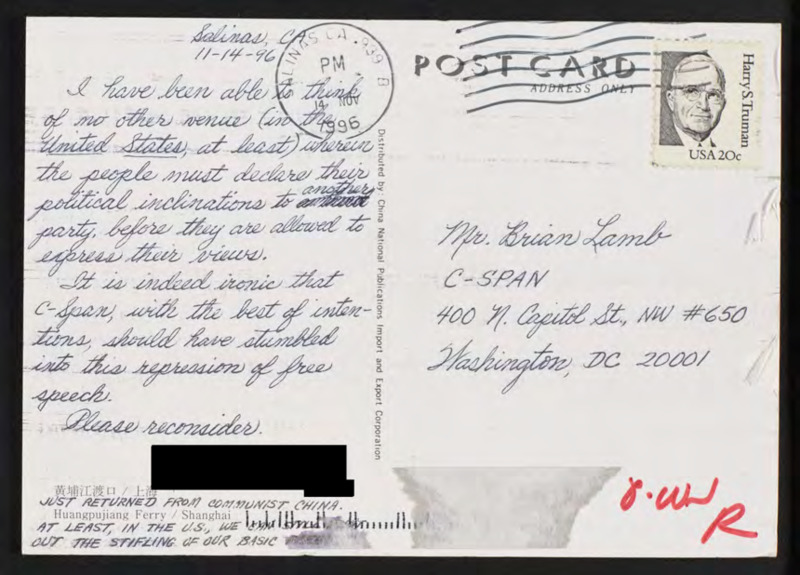 Salinas, CA
11-14-96
I have been able to think
of no other venue (in the
United States, at least) wherein
the people must declare their
political inclinations to another
party, before they are allowed to
express their views.
It is indeed ironic that
C-Span, with the best of inten-
tions, should have stumbled
into this repression of free
speech.
Please reconsider.
黄埔江渡口 / 上海
JUST RETURNED FROM COMMUNIST CHINA.
Huangpujiang Ferry / Shanghai
AT LEAST, IN THE U.S., WE CAN
OUT THE STIFLING OF OUR BASIC
Distributed by: China National Publications Import and Export Corporation
SALINAS CA 939 B
PM
14 NOV
1996
POST CARD
ADDRESS ONLY
Harry S. Truman
USA 20c
Mr. Brian Lamb
C-SPAN
400 N. Capitol St., NW #650
Washington, DC 20001
R